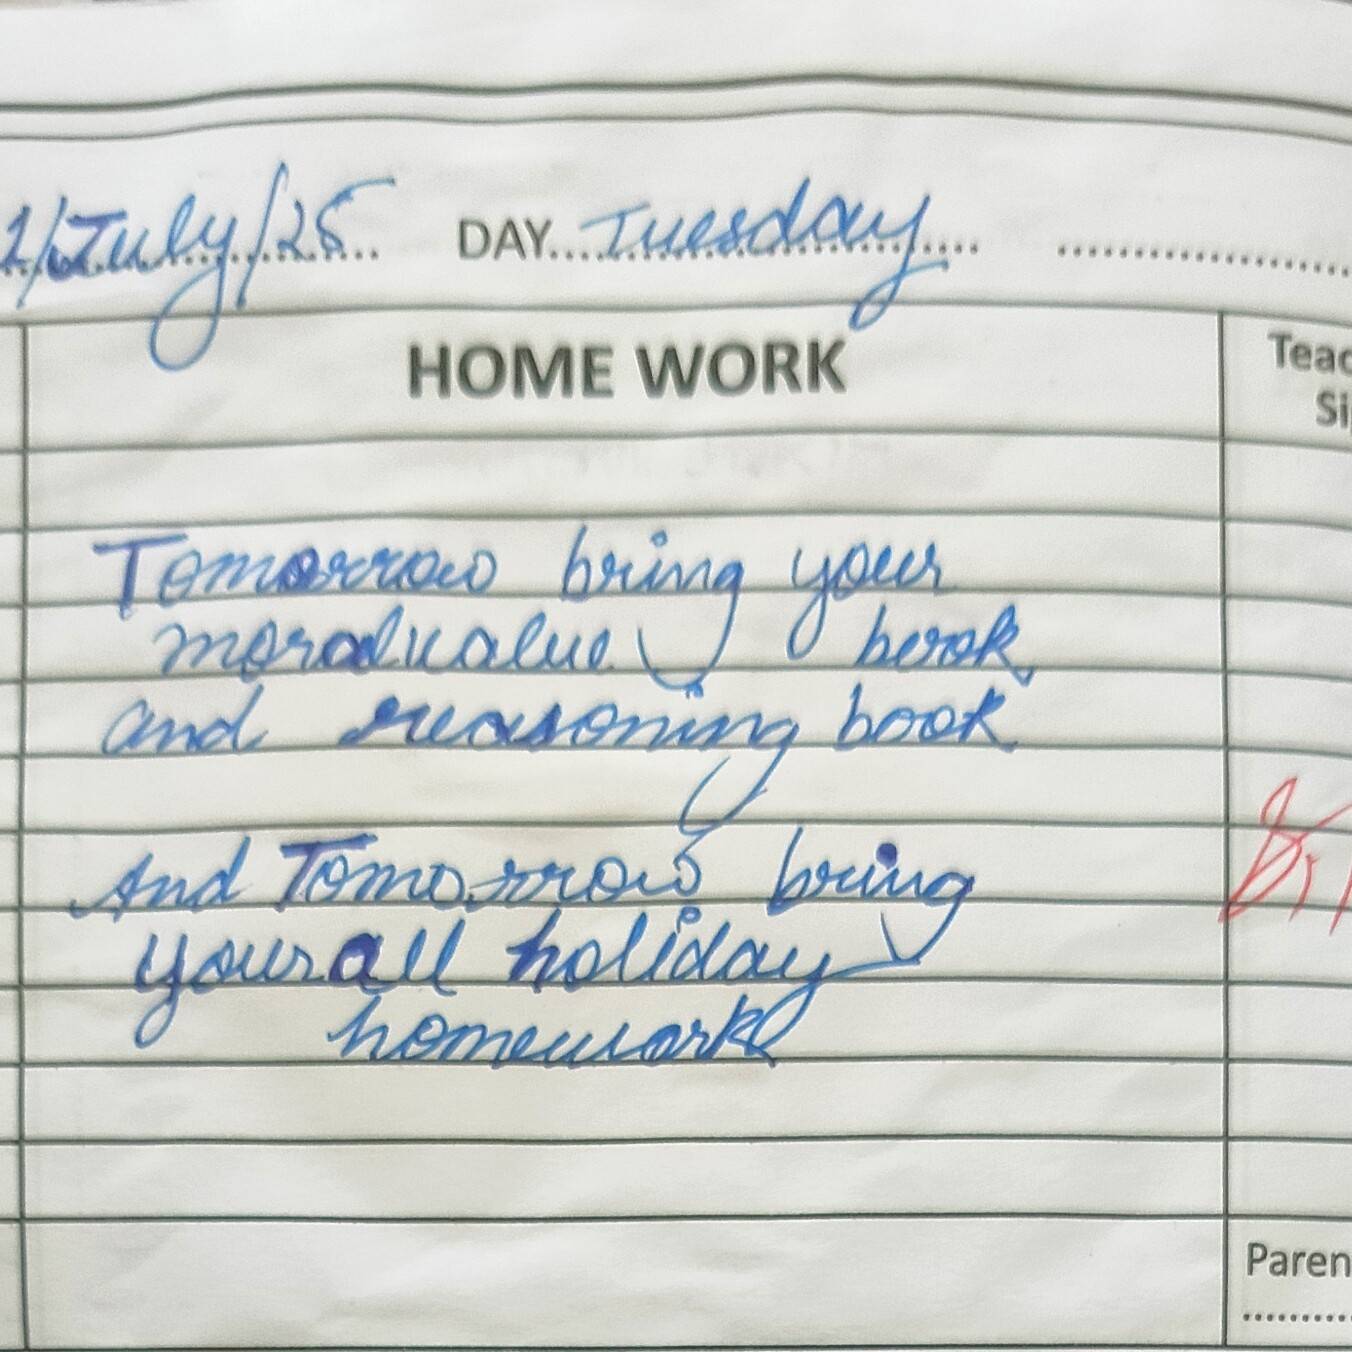 1/July/25 DAY....Tuesday....
HOME WORK
Teac
Si
Tomorrow bring your
moralvalue book
and reasoning book
And Tomorrow bring
your all holiday
homework
Paren